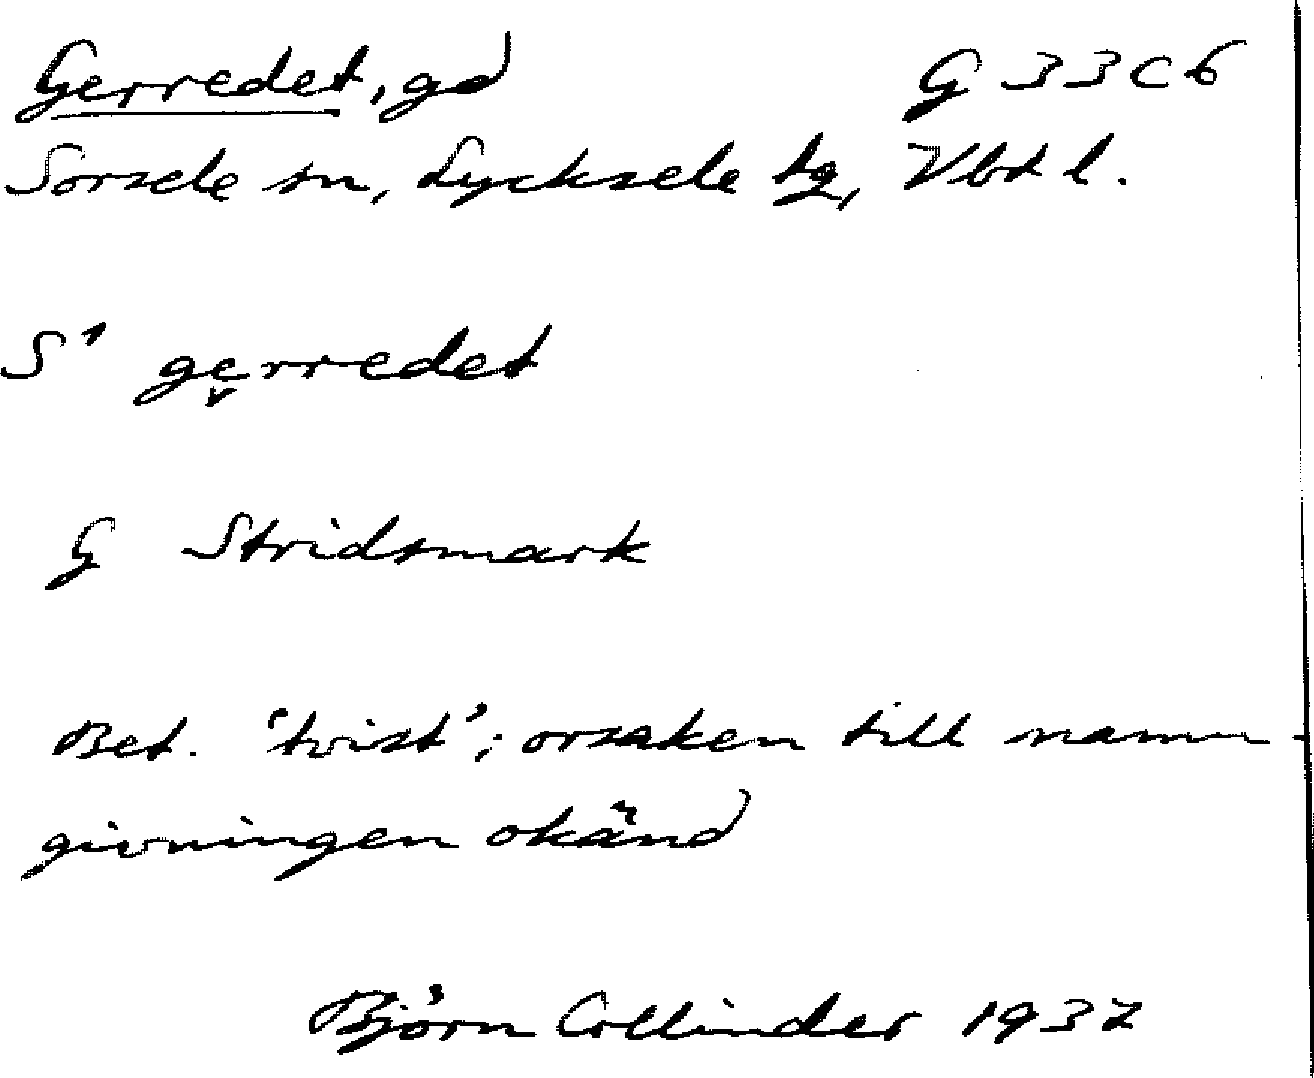 Gerredet, gd G 33 C 6
Sorsele sn, Lycksele tg, Vbtl.
S' ge̬rredet
G Stridsmark
Bet. 'tvist'; orsaken till namn-
givningen okänd
Björn Collinder 1937